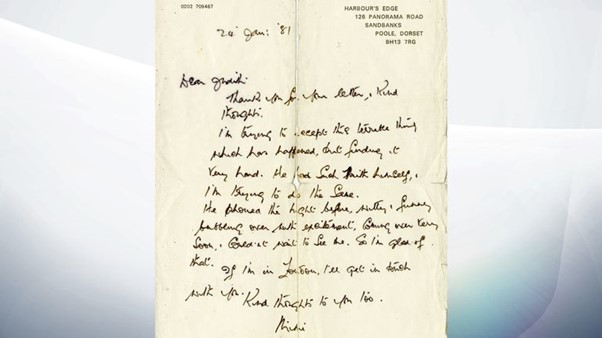 HARBOUR'S EDGE
126 PANORAMA ROAD
SANDBANKS
POOLE, DORSET
BH13 7RG
0202 709467
24 Jan: '81
Dear Judith:
Thank you for your letter, & kind
thoughts.
I'm trying to accept this terrible thing
which has happened, but finding it
very hard. He had such faith himself, &
I'm trying to do the same.
He phoned the night before, witty, & funny
bubbling over with excitement, Coming over very
soon, & couldn't wait to see me. So I'm glad of
that.
If I'm in London, I'll get in touch
with you.
Kind thoughts to you too.
Mimi